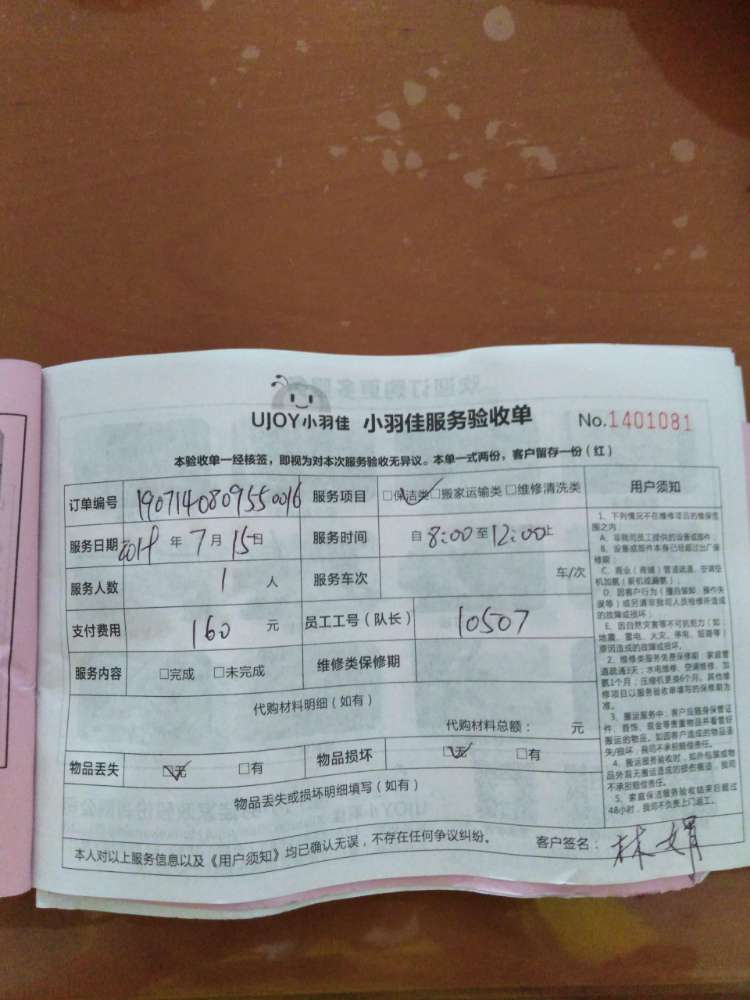 UJOY小羽佳 小羽佳服务验收单 No.1401081
本验收单一经核签，即视为对本次服务验收无异议。本单一式两份，客户留存一份（红）
订单编号 1907140809550016 服务项目 □保洁类□搬家运输类□维修清洗类 用户须知
服务日期 2019年7月15日 服务时间 自8:00至12:00止
服务人数 1人 服务车次 车/次
支付费用 160元 员工工号（队长） 10507
服务内容 □完成 □未完成 维修类保修期
代购材料明细（如有）
代购材料总额： 元
物品丢失 □无 □有 物品损坏 □无 □有
物品丢失或损坏明细填写（如有）
本人对以上服务信息以及《用户须知》均已确认无误，不存在任何争议纠纷。 客户签名：林娟
1、下列情况不在维修项目的维保范
围之内
A、非我司员工提供的设备或部件；
B、设备或部件本身已经超过出厂保
修期；
C、商业（商铺）管道疏通，空调空
机加氟（新机或漏氟）；
D、因客户行为（擅自装卸、操作失
误等）或另请非我司人员检修所造成
的故障或损坏；
E、因自然灾害等不可抗力（如
地震、雷电、火灾、停电、短路等）
原因造成的故障或损坏。
2、维修类服务免费保修期：家庭管
道疏通3天；水电维修、空调维修、加
氟1个月；压缩机更换6个月。其他维
修项目以服务验收单填写的保修期为
准。
3、搬运服务中：客户应随身保管证
件、首饰、现金等贵重物品并看管好
搬运的物品。如因客户造成的物品丢
失/损坏，我司不承担赔偿责任。
4、搬运服务验收时，如外包装或物
品外观无搬运造成的损伤痕迹，我司
不承担赔偿责任。
5、家庭保洁服务验收结束后超过
48小时，我司不负责上门返工。